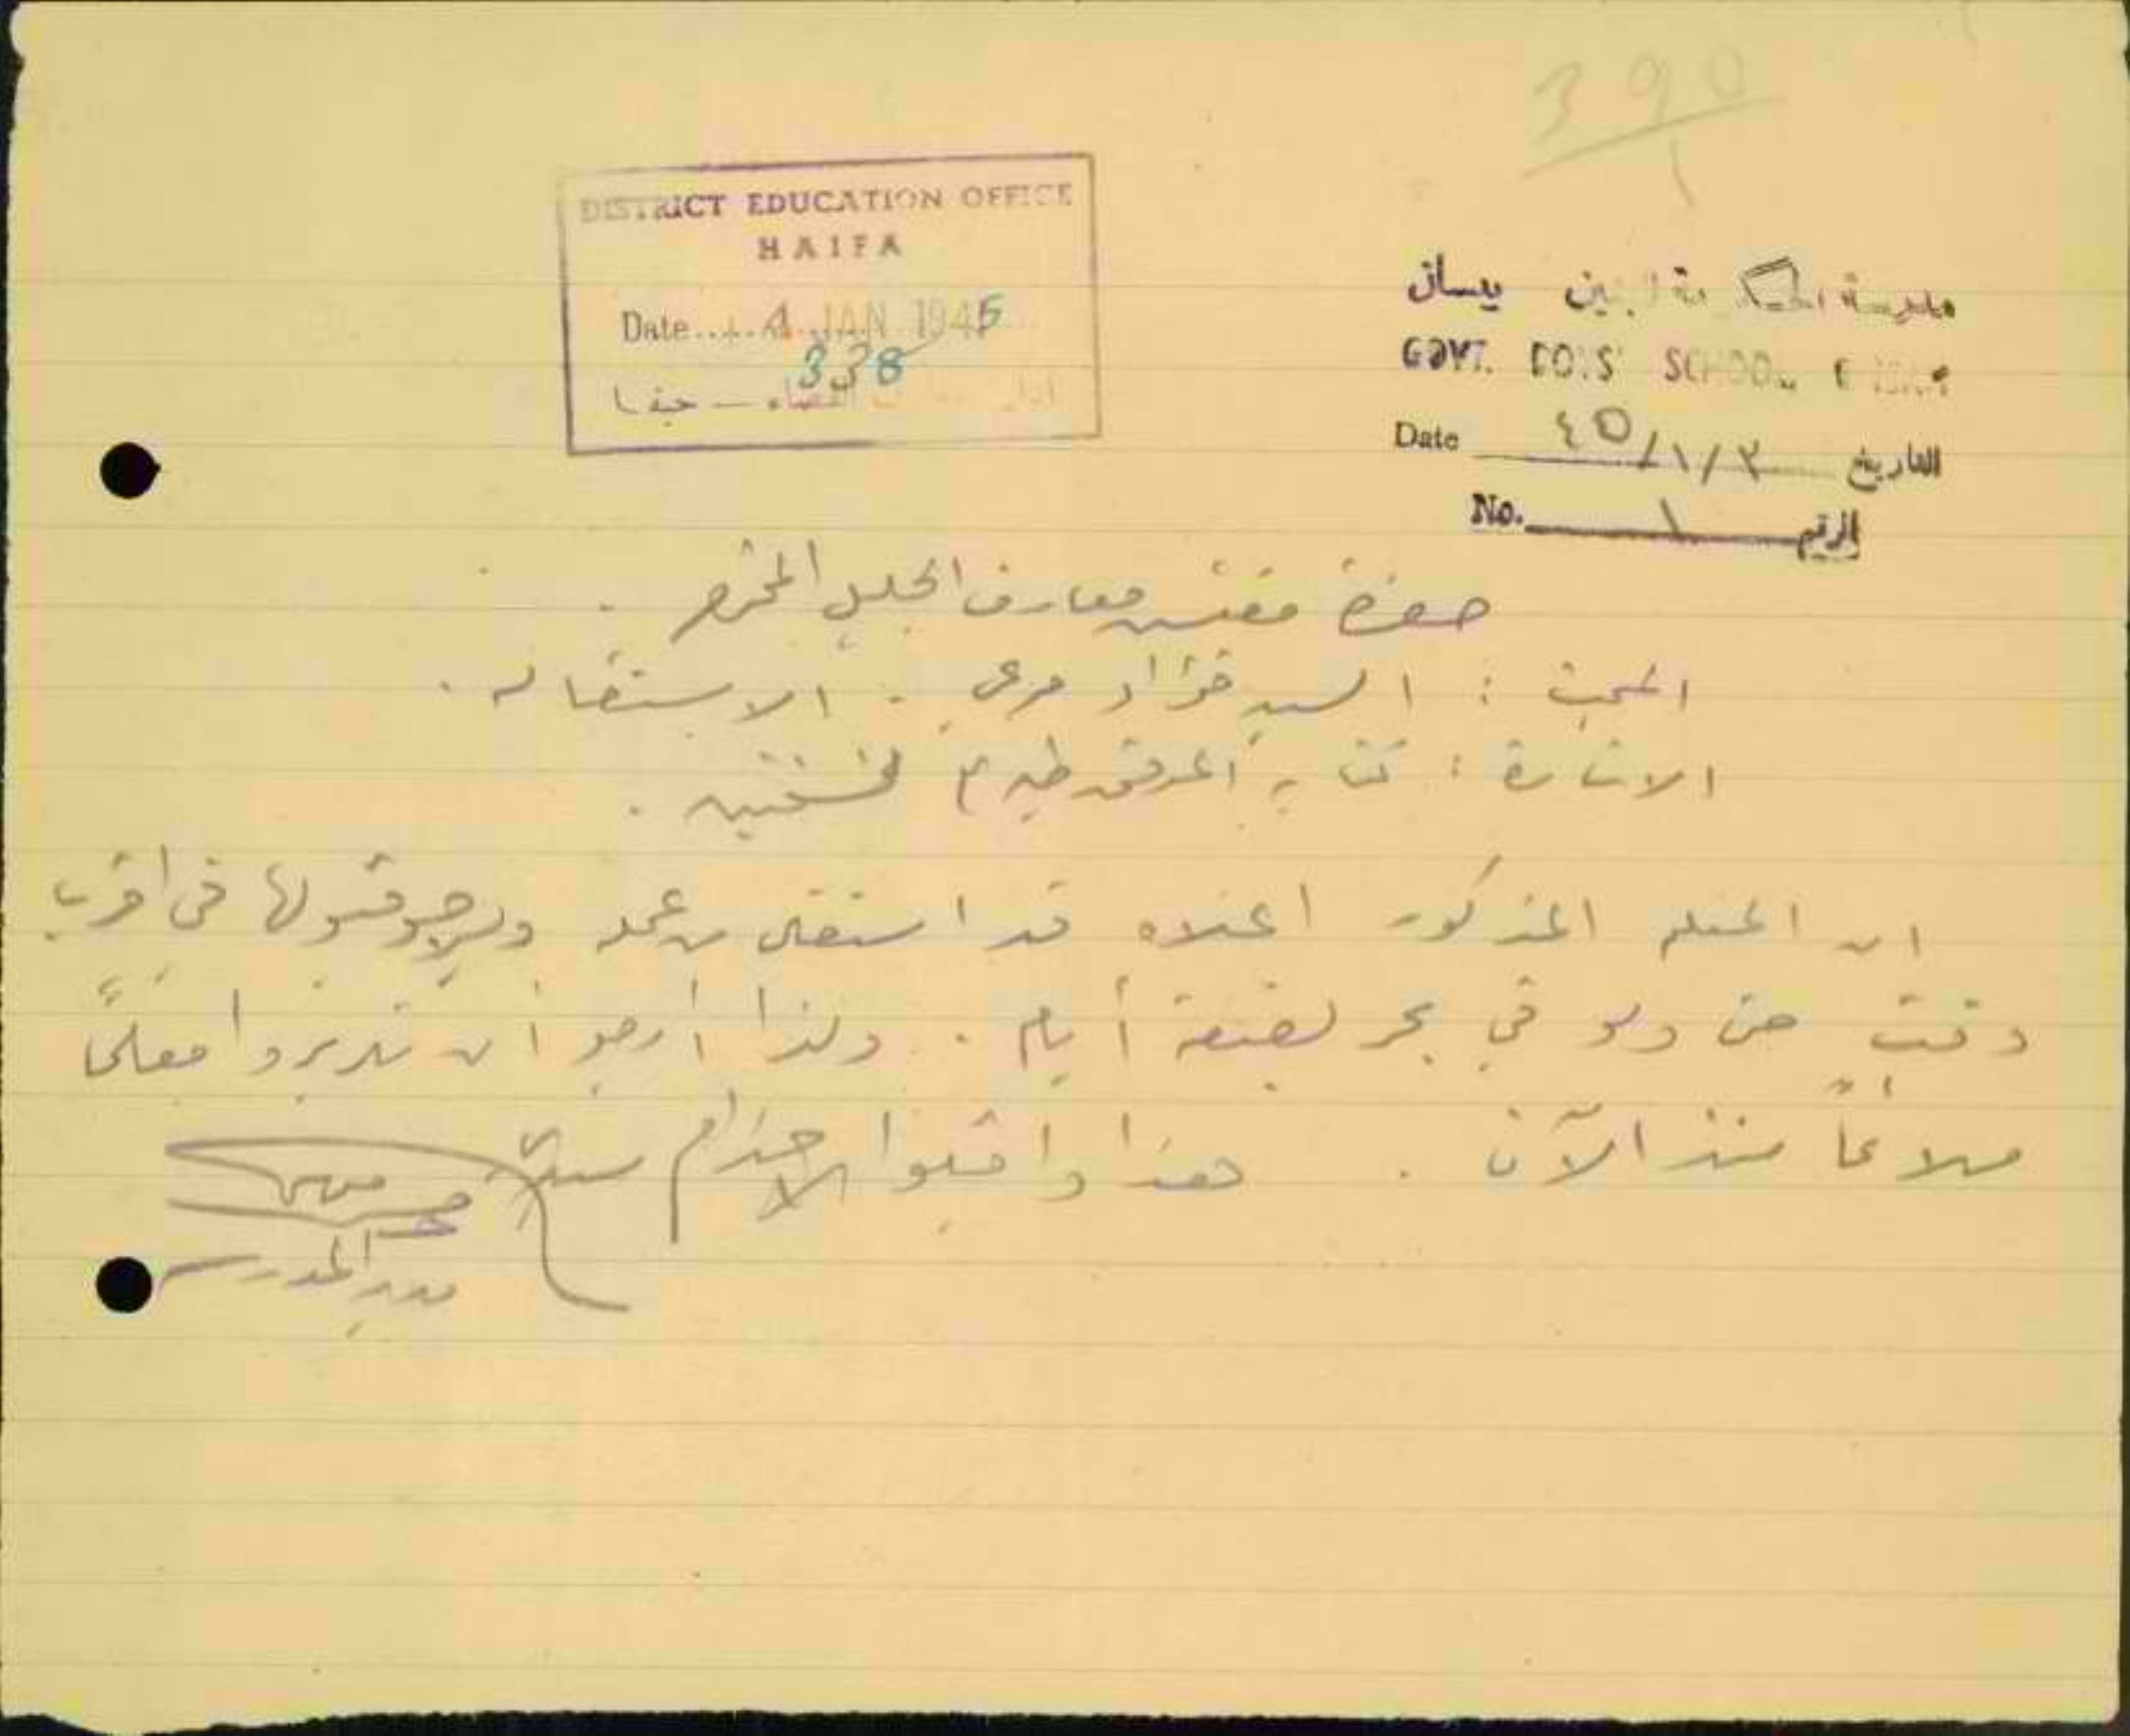 390
1
DISTRICT EDUCATION OFFICE
HAIFA
Date 4 JAN 1945
338
حيفا
مدرسة الحكومة للبنين بيسان
GOVT. BOYS' SCHOOL BEISAN
Date ٤٥/١/٣ التاريخ
No. ١ الرقم
حضرة مفتش معارف الجليل المحترم .
المبحث : السيد فؤاد مرعي . الاستقالة .
الاشارة : كتابه المرفق طيه لنسختين .
ان المعلم المذكور اعلاه قد استقال من عمله ويرجو قبولها في اقرب
وقت حتى ولو في بحر بضعة أيام . ولذا أرجو أن تدبروا معلمًا
ملائمًا منذ الآن . هذا واقبلوا الاحترام سيدي
مدير المدرسة